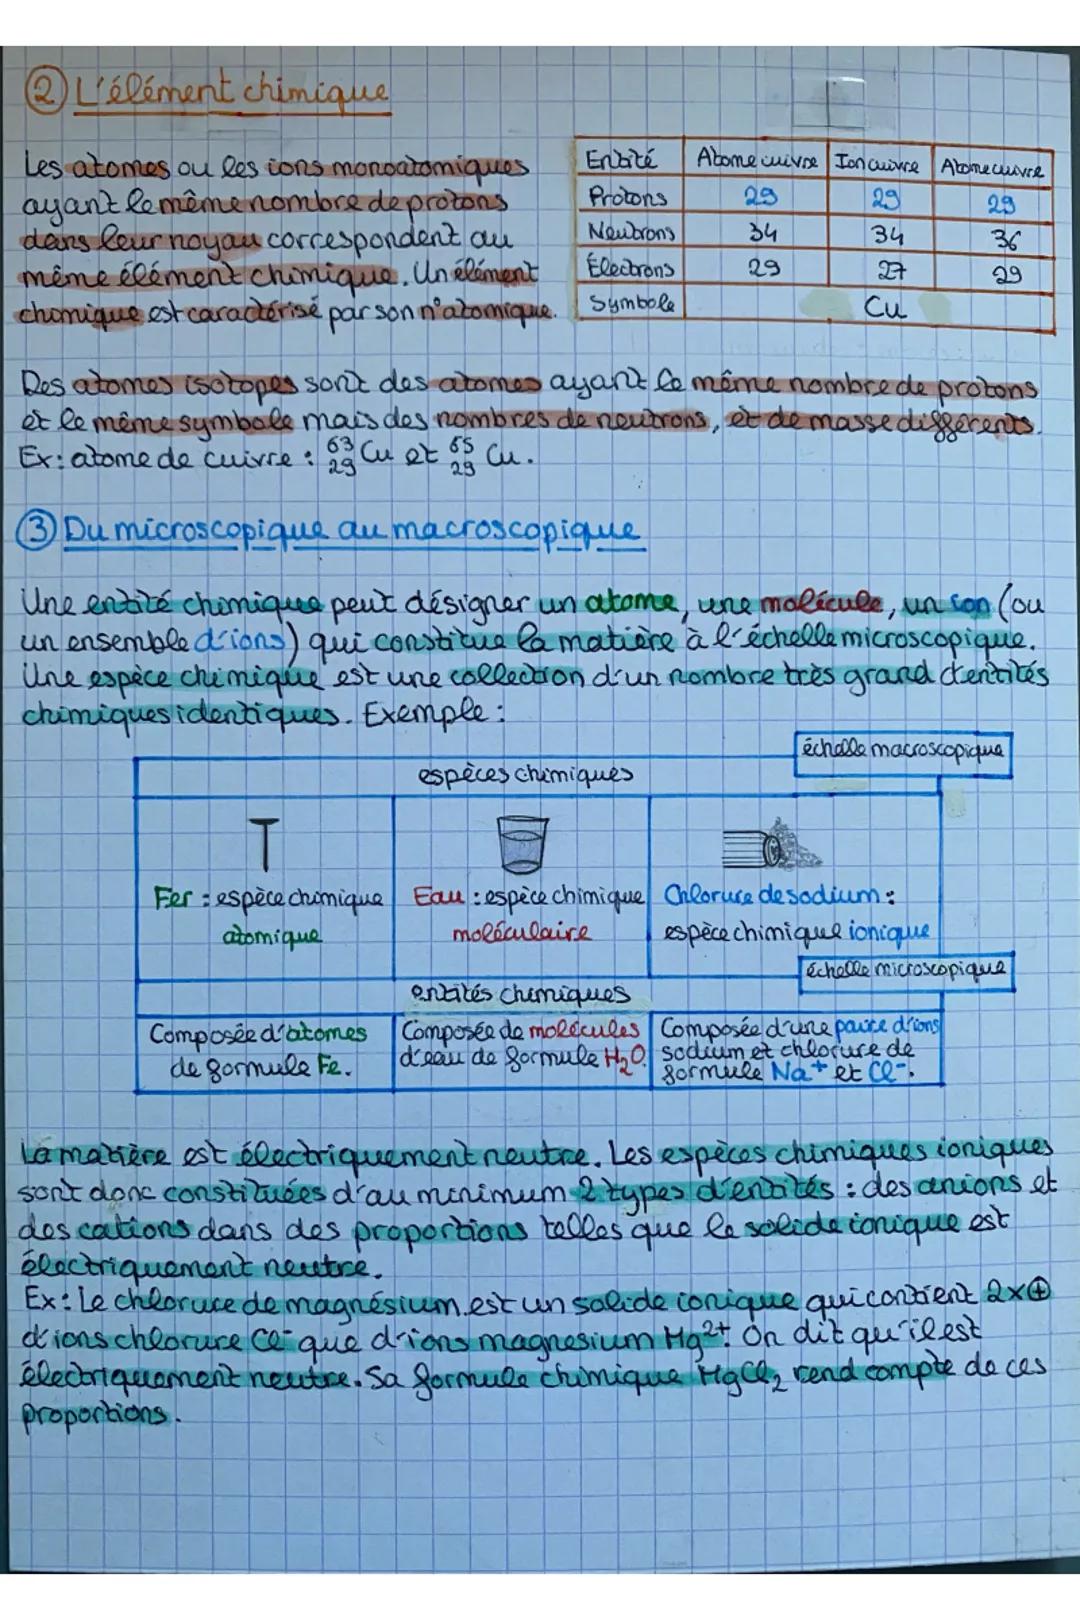 ② L'élément chimique
Les atomes ou les ions monoatomiques
ayant le même nombre de protons
dans leur noyau correspondent au
même élément chimique. Un élément
chimique est caractérisé par son n° atomique.
Entité Atome cuivre Ion cuivre Atome cuivre
Protons 29 29 29
Neutrons 34 34 36
Électrons 29 27 29
Symbole Cu
Des atomes isotopes sont des atomes ayant le même nombre de protons
et le même symbole mais des nombres de neutrons, et de masse différents.
Ex: atome de cuivre : ⁶³₂₉Cu et ⁶⁵₂₉Cu.
③ Du microscopique au macroscopique
Une entité chimique peut désigner un atome, une molécule, un ion (ou
un ensemble d'ions) qui constitue la matière à l'échelle microscopique.
Une espèce chimique est une collection d'un nombre très grand d'entités
chimiques identiques. Exemple :
échelle macroscopique
espèces chimiques
Fer : espèce chimique
atomique
Eau : espèce chimique
moléculaire
Chlorure de sodium :
espèce chimique ionique
échelle microscopique
entités chimiques
Composée d'atomes
de formule Fe.
Composée de molécules
d'eau de formule H₂O.
Composée d'une paire d'ions
sodium et chlorure de
formule Na⁺ et Cl⁻.
La matière est électriquement neutre. Les espèces chimiques ioniques
sont donc constituées d'au minimum 2 types d'entités : des anions et
des cations dans des proportions telles que le solide ionique est
électriquement neutre.
Ex: Le chlorure de magnésium est un solide ionique qui contient 2x⊕
d'ions chlorure Cl⁻ que d'ions magnesium Mg²⁺. On dit qu'il est
électriquement neutre. Sa formule chimique MgCl₂ rend compte de ces
proportions.